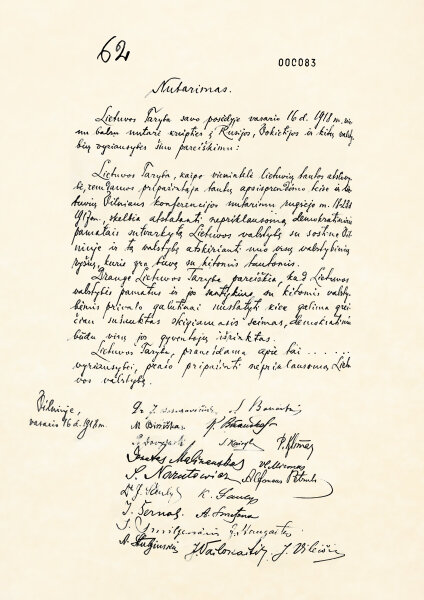 62
000083
Nutarimas.
Lietuvos Taryba savo posėdyje vasario 16 d. 1918 m. vie-
nu balsu nutarė kreiptis į Rusijos, Vokietijos ir kitų valsty-
bių vyriausybes šiuo pareiškimu:
Lietuvos Taryba, kaipo vienintelė lietuvių tautos atstovy-
bė, remdamos pripažintąja tautų apsisprendimo teise ir lie-
tuvių Vilniaus konferencijos nutarimu rugsėjo m. 18-23 d.
1917 m., skelbia atstatanti nepriklausomą demokratiniais
pamatais sutvarkytą Lietuvos valstybę su sostine Vil-
niuje ir tą valstybę atskirianti nuo visų valstybinių
ryšių, kurie yra buvę su kitomis tautomis.
Drauge Lietuvos Taryba pareiškia, kad Lietuvos
valstybės pamatus ir jos santykius su kitomis valsty-
bėmis privalo galutinai nustatyti kiek galima grei-
čiau sušauktas steigiamasis seimas, demokratiniu
būdu visų jos gyventojų išrinktas.
Lietuvos Taryba, pranešdama apie tai . . . . . .
vyriausybei, prašo pripažinti nepriklausomą Lietu-
vos valstybę.
Vilniuje,
vasario 16 d. 1918 m.
Dr J. Basanavičius S. Banaitis
M. Biržiška K. Bizauskas
Pr. Dovydaitis S. Kairys P. Klimas
Donatas Malinauskas Vl. Mironas
S. Narutowicz Alfonsas Petrulis
Dr. J. Šaulys K. Šaulys
J. Šernas A. Smetona
J. Smilgevičius J. Staugaitis
A. Stulginskis J. Vailokaitis J. Vileišis